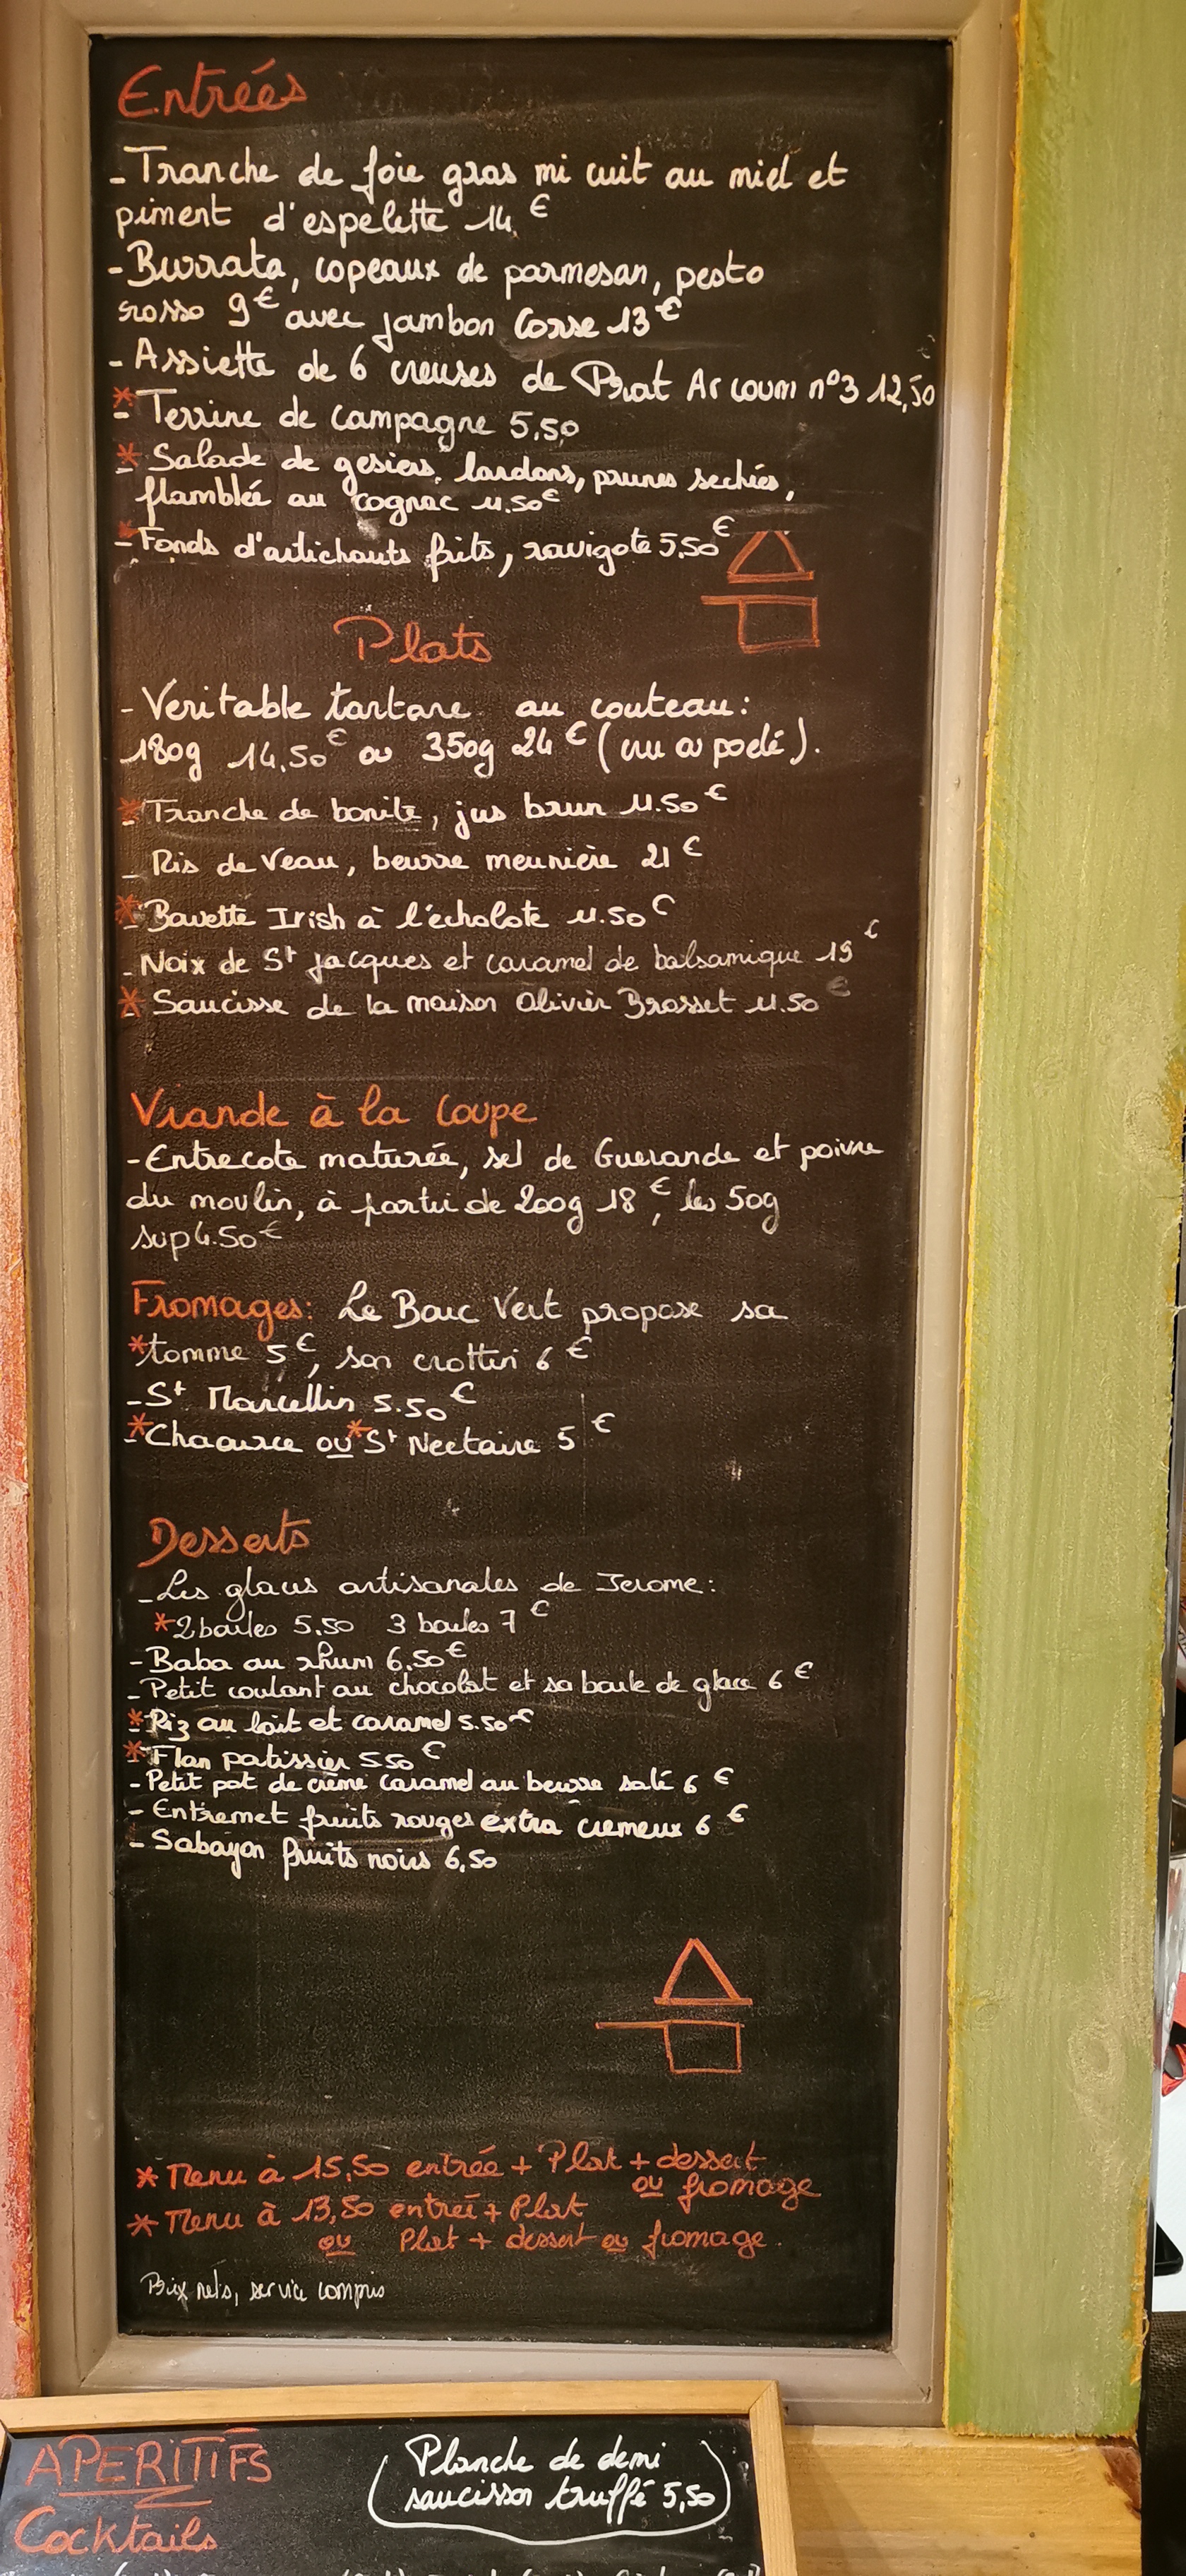 Entrées
- Tranche de foie gras mi cuit au miel et
piment d'espelette 14 €
- Burrata, copeaux de parmesan, pesto
rosso 9€ avec jambon Corse 13€
- Assiette de 6 creuses de Prat Ar coum n°3 12,50
*- Terrine de campagne 5,50
*- Salade de gesiers, lardons, prunes sechées,
flamblée au cognac 11.50€
*- Fonds d'artichauts frits, ravigote 5.50€
Plats
- Veritable tartare au couteau:
180g 14.50€ ou 350g 24€ (cru ou poelé).
*- Tranche de bonite, jus brun 11.50€
- Ris de Veau, beurre meunière 21€
*- Bavette Irish à l'échalote 11.50€
- Noix de St jacques et caramel de balsamique 19€
*- Saucisse de la maison Olivier Brosset 11.50€
Viande à la Coupe
- Entrecote maturée, sel de Guerande et poivre
du moulin, à partir de 200g 18€, les 50g
sup 4.50€
Fromages: Le Bouc Vert propose sa
*tomme 5€, son crottin 6€
- St Marcellin 5.50€
*- Chaource ou *St Nectaire 5€
Desserts
- Les glaces artisanales de Jerome:
*2 boules 5.50 3 boules 7€
- Baba au rhum 6.50€
- Petit coulant au chocolat et sa boule de glace 6€
*- Riz au lait et caramel 5.50€
*- Flan patissier 550€
- Petit pot de crème caramel au beurre salé 6€
- Entremet fruits rouges extra cremeux 6€
- Sabayon fruits noirs 6.50
* Menu à 15,50 entrée + Plat + dessert
ou fromage
* Menu à 13,50 entreé + Plat
ou Plat + dessert ou fromage.
Prix nets, service compris
APERITIFS
Cocktails
Planche de demi
saucisson truffé 5,50